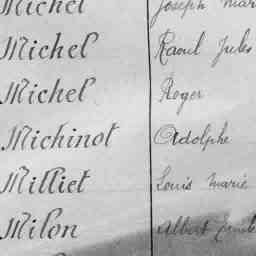 Michel Joseph Mari
Michel Raoul Jules
Michel Roger
Michinot Adolphe
Milliet Louis Marie
Milon Albert Emile